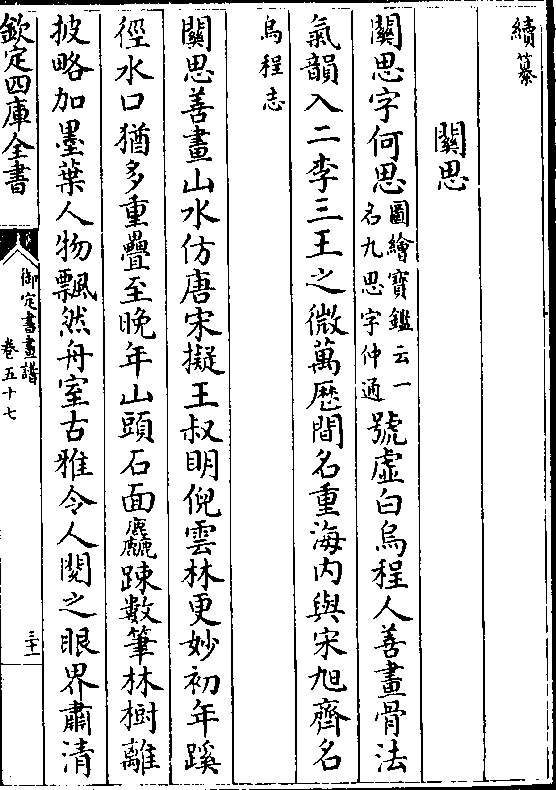 續纂
關思
關思字何思圖繪寶鑑云一名九思字仲通號虛白烏程人善畫骨法
氣韻入二李三王之微萬厯間名重海內與宋旭齊名
烏程志
關思善畫山水仿唐宋擬王叔明倪雲林更妙初年蹊
徑水口猶多重疊至晚年山頭石面麤踈數筆林樹離
披略加墨葉人物飄然舟室古雅令人閱之眼界肅清
欽定四庫全書
御定書畫譜
卷五十七
三十一